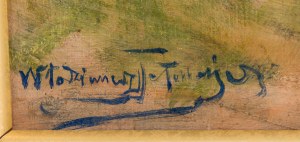 Włodzimierz Tetmajer